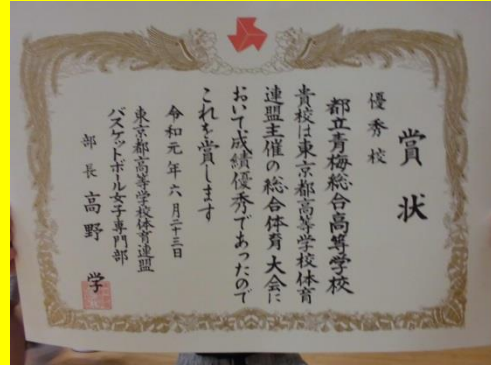 賞状
優秀校
都立青梅総合高等学校
貴校は東京都高等学校体育
連盟主催の総合体育大会に
おいて成績優秀であったので
これを賞します
令和元年六月二十三日
東京都高等学校体育連盟
バスケットボール女子専門部
部長 高野 学